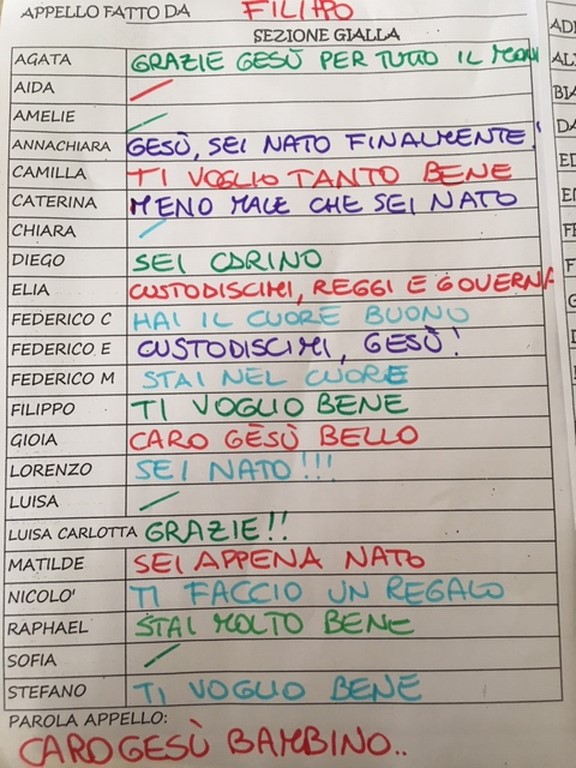 APPELLO FATTO DA FILIPPO
SEZIONE GIALLA
AGATA GRAZIE GESÙ PER TUTTO IL
AIDA
AMELIE
ANNACHIARA GESÙ, SEI NATO FINALMENTE!
CAMILLA TI VOGLIO TANTO BENE
CATERINA MENO MALE CHE SEI NATO
CHIARA
DIEGO SEI CARINO
ELIA CUSTODISCIMI, REGGI E GOVERNA
FEDERICO C HAI IL CUORE BUONO
FEDERICO E CUSTODISCIMI, GESÙ!
FEDERICO M STAI NEL CUORE
FILIPPO TI VOGLIO BENE
GIOIA CARO GESÙ BELLO
LORENZO SEI NATO!!!
LUISA
LUISA CARLOTTA GRAZIE!!
MATILDE SEI APPENA NATO
NICOLO' TI FACCIO UN REGALO
RAPHAEL STAI MOLTO BENE
SOFIA
STEFANO TI VOGLIO BENE
PAROLA APPELLO:
CARO GESÙ BAMBINO..